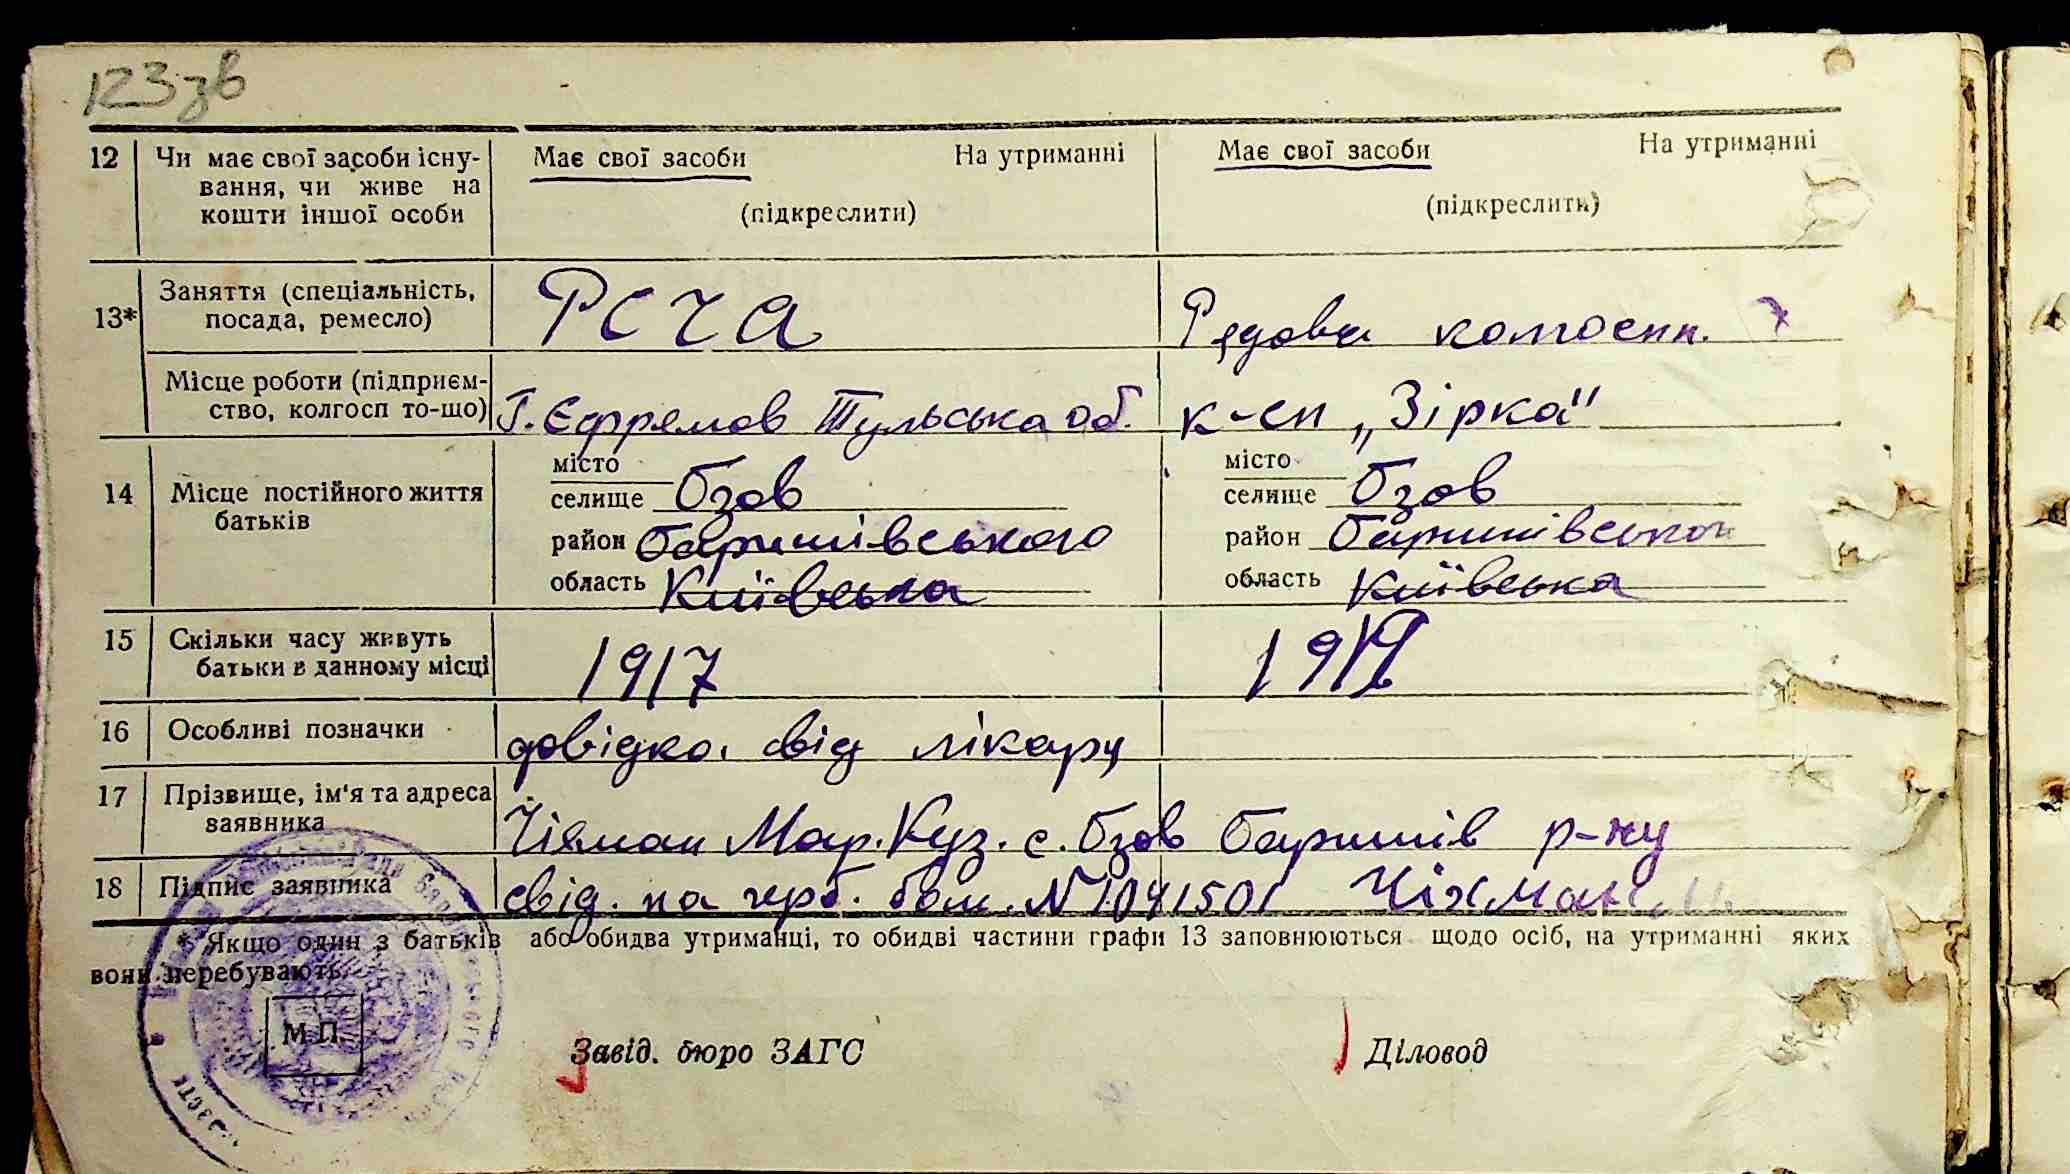 123зв
12 Чи має свої засоби існу- Має свої засоби На утриманні Має свої засоби На утриманні
вання, чи живе на
кошти іншої особи (підкреслити) (підкреслити)
13* Заняття (спеціальність, РСЧА Рядова колгоспн.
посада, ремесло)
Місце роботи (підприєм- Г. Єфрямов Тульська об. к-сп „Зірка"
ство, колгосп то-що)
14 Місце постійного життя місто місто
батьків селище Бзов селище Бзов
район Баришівського район Баришівського
область Київська область Київська
15 Скільки часу живуть 1917
батьки в данному місці
16 Особливі позначки довідка від лікару
17 Прізвище, ім'я та адреса Чіхман Мар. Куз. с. Бзов Баришів р-ну
заявника
18 Підпис заявника свід. на черб. бом. N 1041501 Чіхман
* Якщо один з батьків або обидва утриманці, то обидві частини графи 13 заповнюються щодо осіб, на утриманні яких
вони перебувають.
М П
Завід. бюро ЗАГС Діловод